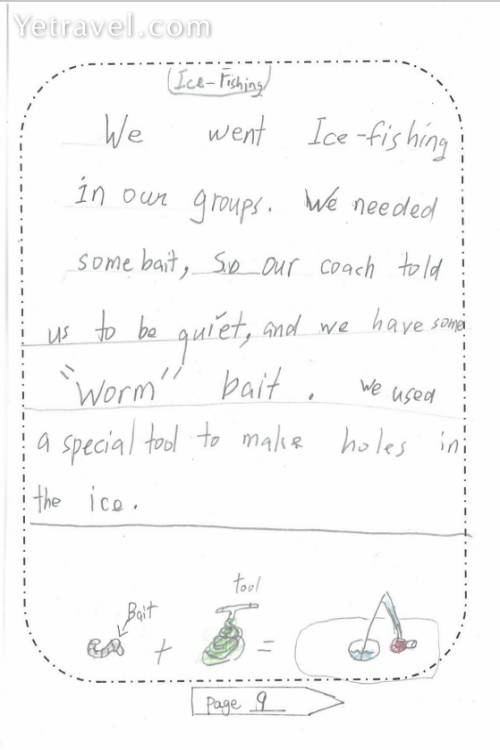 Yetravel.com
Ice-Fishing
We went Ice-fishing
in our groups. We needed
some bait, So our coach told
us to be quiet, and we have some
"Worm" bait. We used
a special tool to make holes in
the ice.
tool
Bait
+ =
Page 9